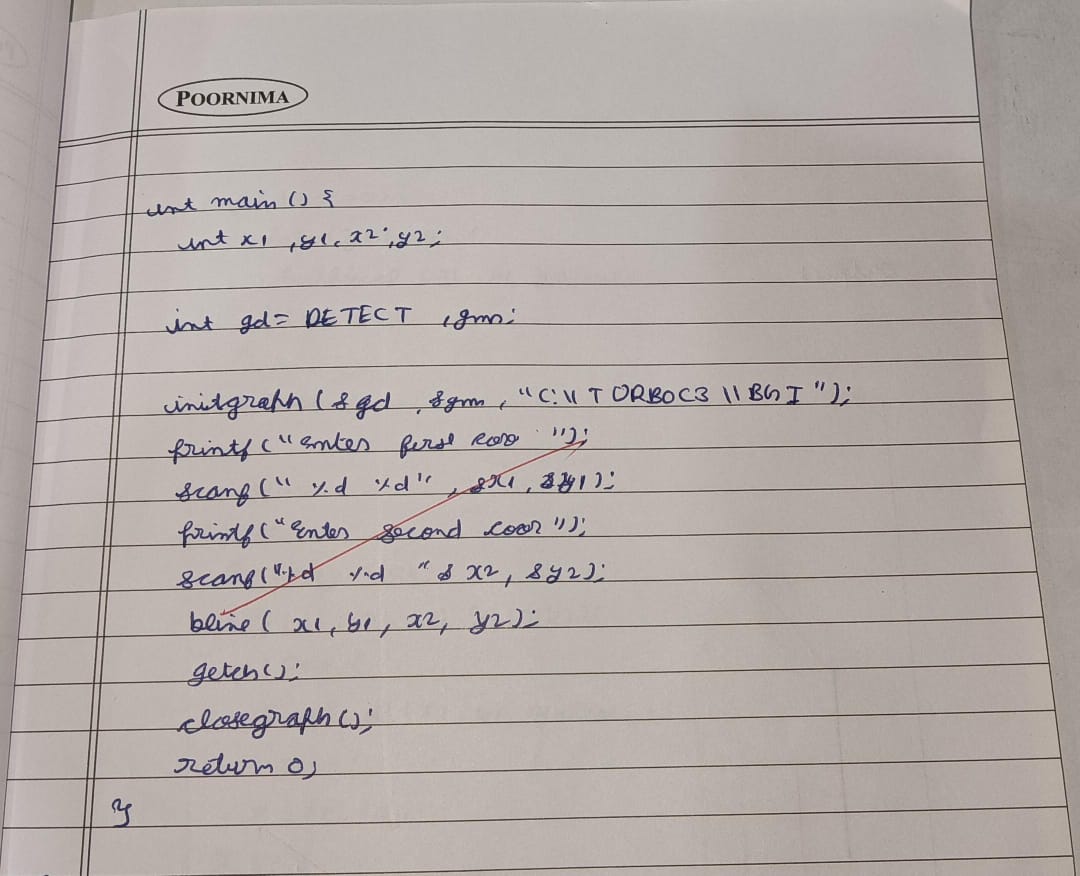 POORNIMA
int main () {
int x1 , y1, x2, y2;
int gd = DETECT , gm;
initgraph ( & gd , & gm , "C:\\ TORBOC3 \\ BGI ");
printf ("Enter first coor ");
scanf (" %d %d" , &x1 , &y1);
printf ("Enter second coor ");
scanf ("%d %d " & x2, & y2);
bline ( x1, y1, x2, y2);
getch ();
closegraph ();
return 0;
}